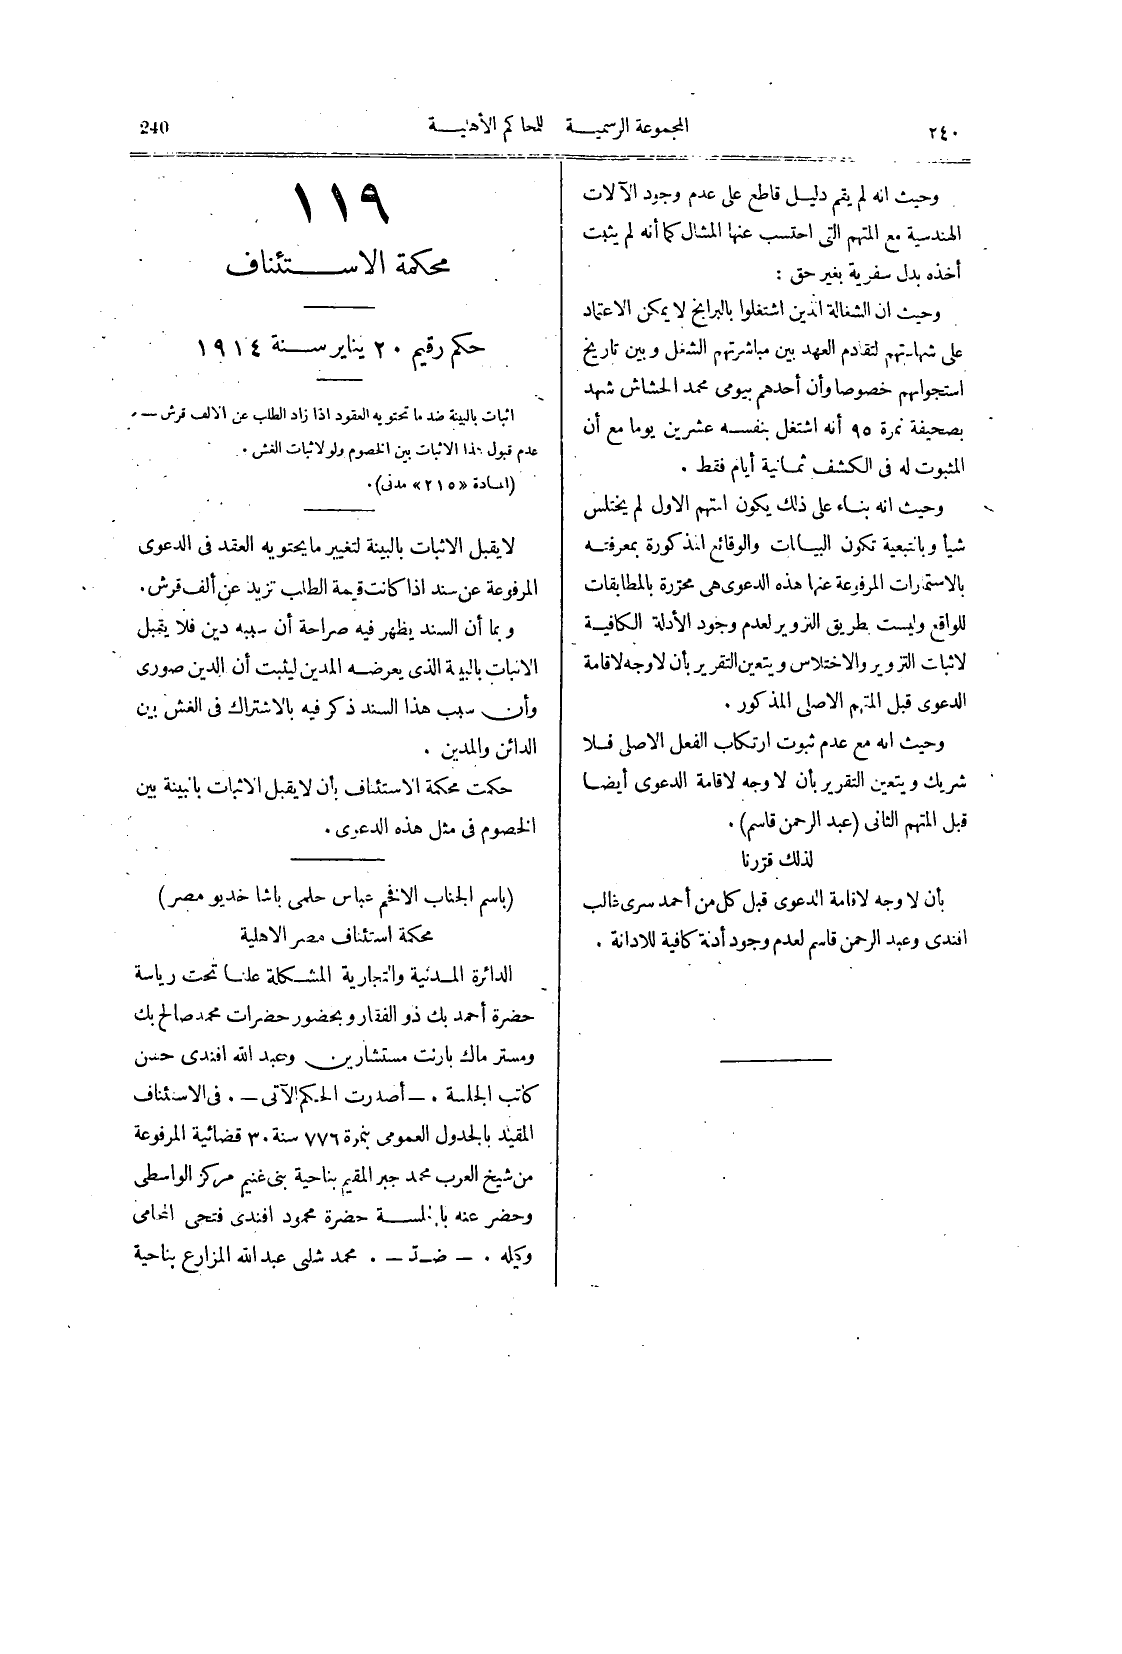 ٢٤٠
المجموعة الرسمية للمحاكم الأهلية
240
وحيث انه لم يقم دليل قاطع على عدم وجود الآلات
الهندسية مع المتهم التى احتسب عنها المشال كما أنه لم يثبت
أخذه بدل سفرية بغير حق :
وحيث ان الشغالة الذين اشتغلوا بالبرابخ لا يمكن الاعتماد
على شهادتهم لتقادم العهد بين مباشرتهم الشغل وبين تاريخ
استجوابهم خصوصا وأن أحدهم بيومى محمد الحشاش شهد
بصحيفة نمرة ٩٥ أنه اشتغل بنفسه عشرين يوما مع أن
المثبوت له فى الكشف ثمانية أيام فقط .
وحيث انه بناء على ذلك يكون المتهم الاول لم يختلس
شيأ وبالتبعية تكون البيانات والوقائع المذكورة بمعرفته
بالاستمارات المرفوعة عنها هذه الدعوى هى محررة بالمطابقات
للواقع وليست بطريق التزوير لعدم وجود الأدلة الكافية
لاثبات التزوير والاختلاس ويتعين التقرير بأن لا وجه لاقامة
الدعوى قبل المتهم الاصلى المذكور .
وحيث انه مع عدم ثبوت ارتكاب الفعل الاصلى فلا
شريك ويتعين التقرير بأن لا وجه لاقامة الدعوى أيضا
قبل المتهم الثانى (عبد الرحمن قاسم) .
لذلك قررنا
بأن لا وجه لاقامة الدعوى قبل كل من أحمد سرى غالب
افندى وعبد الرحمن قاسم لعدم وجود أدلة كافية للادانة .
١١٩
محكمة الاستئناف
حكم رقيم ٢٠ يناير سنة ١٩١٤
اثبات بالبينة ضد ما تحتويه العقود اذا زاد الطلب عن الالف قرش — .
عدم قبول هذا الاثبات بين الخصوم ولو لاثبات الغش .
(المادة «٢١٥» مدنى) .
لا يقبل الاثبات بالبينة لتغيير ما يحتويه العقد فى الدعوى
المرفوعة عن سند اذا كانت قيمة الطلب تزيد عن ألف قرش .
وبما أن السند يظهر فيه صراحة أن سببه دين فلا يقبل
الاثبات بالبينة الذى يعرضه المدين ليثبت أن الدين صورى
وأن سبب هذا السند ذكر فيه بالاشتراك فى الغش بين
الدائن والمدين .
حكمت محكمة الاستئناف بأن لا يقبل الاثبات بالبينة بين
الخصوم فى مثل هذه الدعوى .
(باسم الجناب الافخم عباس حلمى باشا خديو مصر)
محكمة استئناف مصر الاهلية
الدائرة المدنية والتجارية المشكلة علنا تحت رياسة
حضرة أحمد بك ذو الفقار وبحضور حضرات محمد صالح بك
ومستر ماك بارنت مستشارين وعبد الله افندى حسن
كاتب الجلسة . — أصدرت الحكم الآتى — . فى الاستئناف
المقيد بالجدول العمومى بنمرة ٧٧٦ سنة ٣٠ قضائية المرفوعة
من شيخ العرب محمد جبر المقيم بناحية بنى غنيم مركز الواسطى
وحضر عنه بالجلسة حضرة محمود افندى فتحى المحامى
وكيله . — ضدّ — . محمد شلبى عبد الله المزارع بناحية